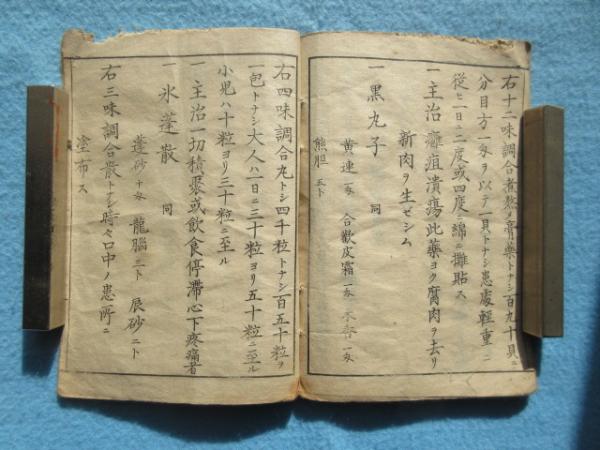 右十二味調合煮熬メ膏薬トナシ百九十貝ニ
分目方一匁ヲ以テ一貝トナシ患處軽重ニ
従ヒ一日ニ二度或四度ニ綿ニ攤貼ス
一主治癰疽潰瘍此薬ヨク腐肉ヲ去リ
新肉ヲ生ゼシム
一黒丸子 同
黄連一匁 合歡皮霜一匁 木香一匁
熊胆五ト
右四味調合丸トシ四千粒トナシ百五十粒ヲ
一包トナシ大人ハ一日ニ三十粒ヨリ五十粒ニ至ル
小児ハ十粒ヨリ三十粒ニ至ル
一主治一切積聚或飲食停滞心下疼痛者
一氷蓬散 同
蓬砂十匁 龍腦三ト 辰砂二ト
右三味調合散トナシ時々口中ノ患所ニ
塗布ス